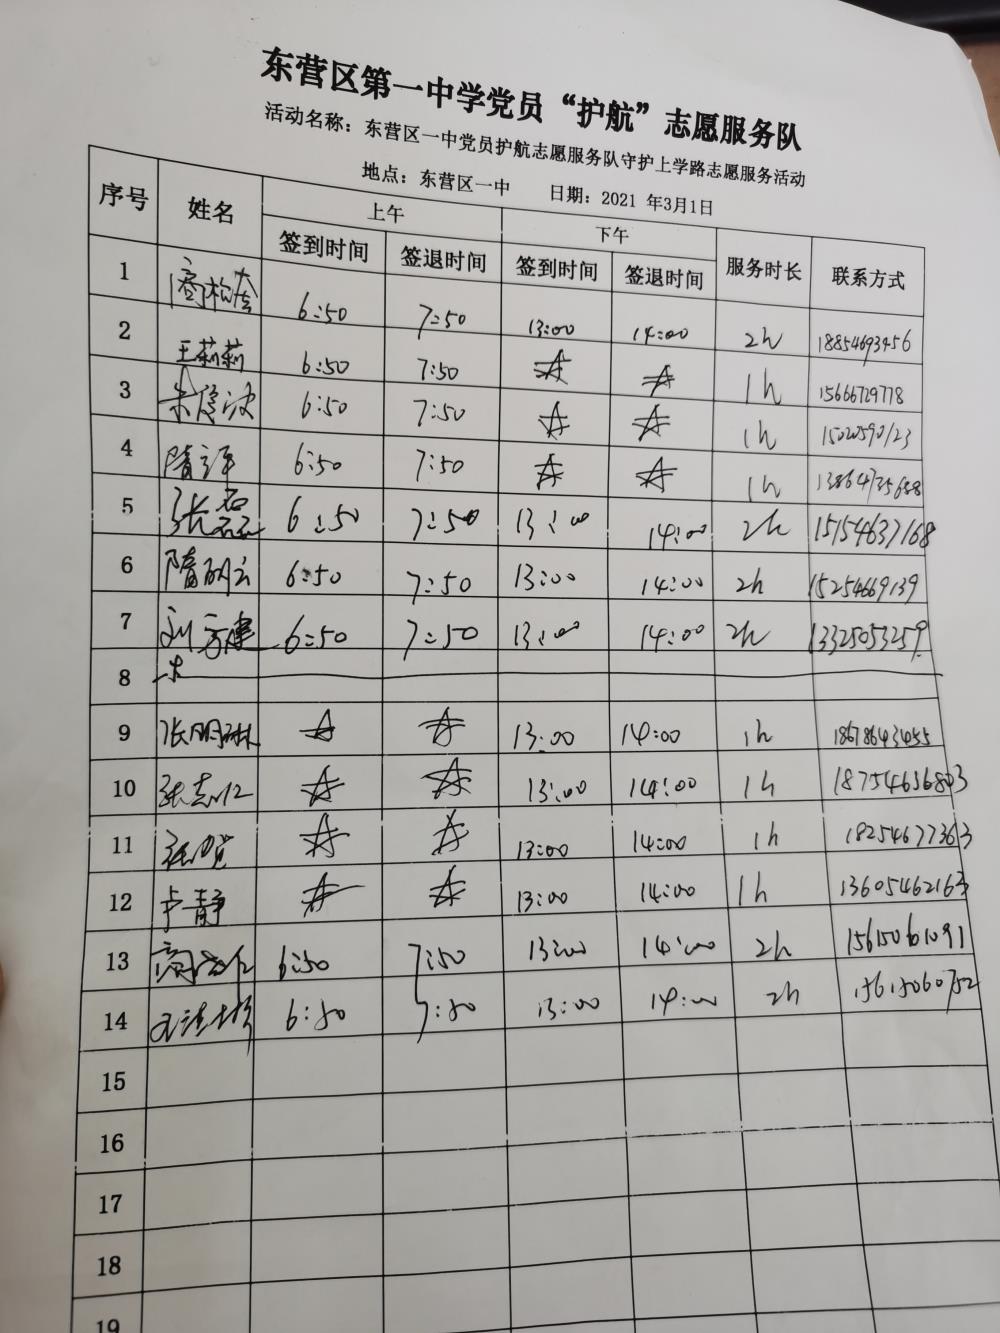 东营区第一中学党员“护航”志愿服务队
活动名称：东营区一中党员护航志愿服务队守护上学路志愿服务活动
地点：东营区一中 日期：2021 年3月1日
序号 姓名 上午 下午 服务时长 联系方式
签到时间 签退时间 签到时间 签退时间
1 6:50 7:50 13:00 14:00 2h 18854693456
2 王莉莉 6:50 7:50 ☆ ☆ 1h 15666729778
3 6:50 7:50 ☆ ☆ 1h
4 6:50 7:50 ☆ ☆ 1h
5 张磊 6:50 7:50 13:00 14:00 2h 15154637168
6 隋丽云 6:50 7:50 13:00 14:00 2h 15254669139
7 6:50 7:50 13:00 14:00 2h 13325053259
8
9 张明琳 ☆ ☆ 13:00 14:00 1h 18678643455
10 张志仁 ☆ ☆ 13:00 14:00 1h 18754656803
11 ☆ ☆ 13:00 14:00 1h 18254677363
12 卢静 ☆ ☆ 13:00 14:00 1h 13605462163
13 6:50 7:50 13:00 14:00 2h 15615061091
14 6:50 7:50 13:00 14:00 2h 15615060752
15
16
17
18
19